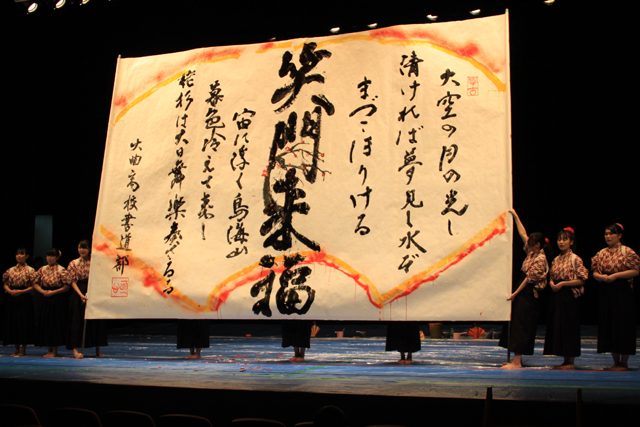 大空の月の光し
清ければ影見し水ぞ
まづこほりける
笑門来福
宙に浮く鳥海山
暮色冷えて来し
杉は大日舞楽奏でゐる
大曲高校書道部